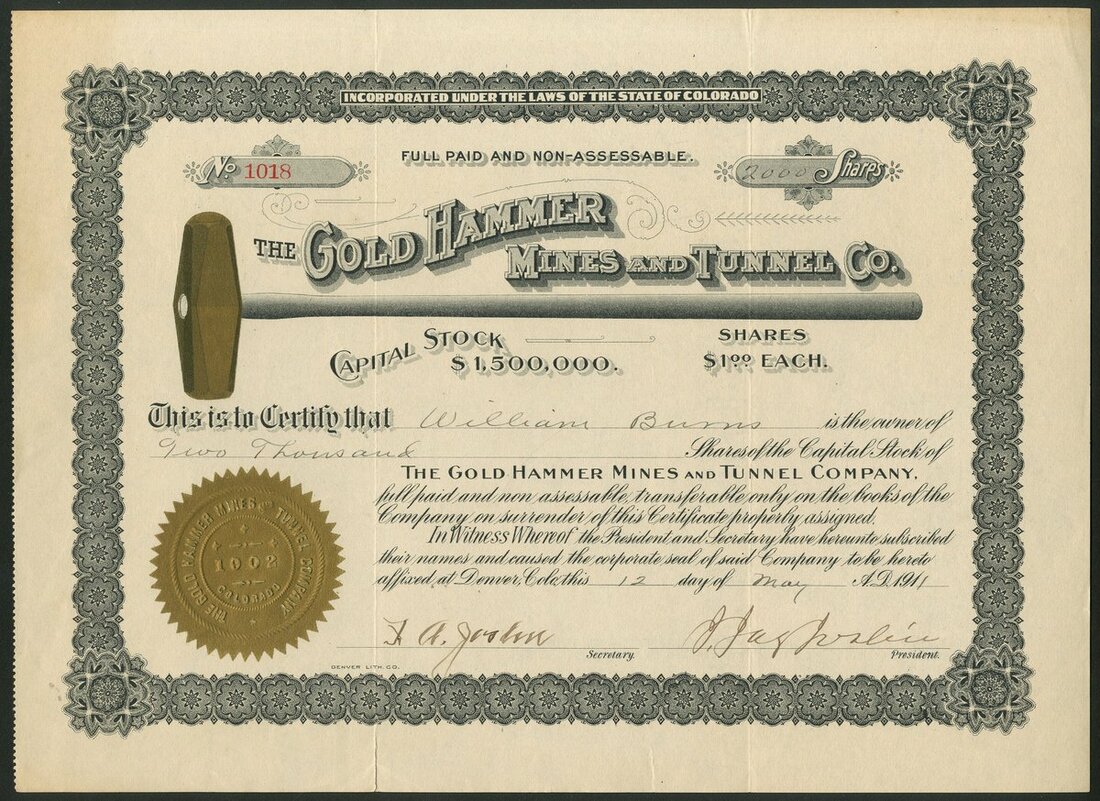 INCORPORATED UNDER THE LAWS OF THE STATE OF COLORADO
FULL PAID AND NON-ASSESSABLE.
No 1018
2000 Shares
THE GOLD HAMMER
MINES AND TUNNEL CO.
CAPITAL STOCK
$1,500,000.
SHARES
$1.00 EACH.
This is to Certify that William Burns is the owner of
Two Thousand Shares of the Capital Stock of
THE GOLD HAMMER MINES AND TUNNEL COMPANY,
full paid and non assessable, transferable only on the books of the
Company on surrender of this Certificate properly assigned.
In Witness Whereof the President and Secretary have hereunto subscribed
their names and caused the corporate seal of said Company to be hereto
affixed, at Denver, Colo, this 12 day of May A.D. 1911
THE GOLD HAMMER MINES AND TUNNEL COMPANY
1902
COLORADO
F. A. Joslin
Secretary.
J. Jay Joslin
President.
DENVER LITH. CO.